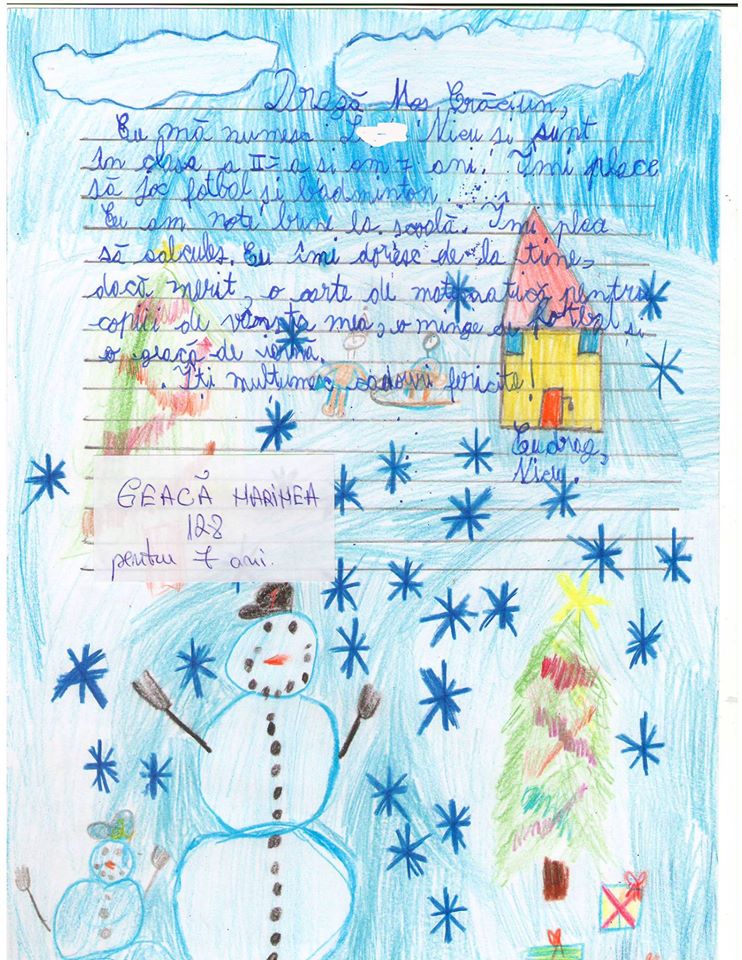 Dragă Moș Crăciun,
Eu mă numesc L Nicu și sunt
în clasa a II-a și am 7 ani. Îmi place
să joc fotbal și badminton.
Eu am note bune la școală. Îmi plea
să calculez. Eu îmi doresc de la tine,
dacă merit, o carte de matematică pentru
copiii de vârsta mea, o minge de fotbal și
o geacă de iarnă.
Îți mulțumesc sadouri fericite!
Cu drag,
Nicu.
GEACĂ MARIMEA
128
pentru 7 ani.